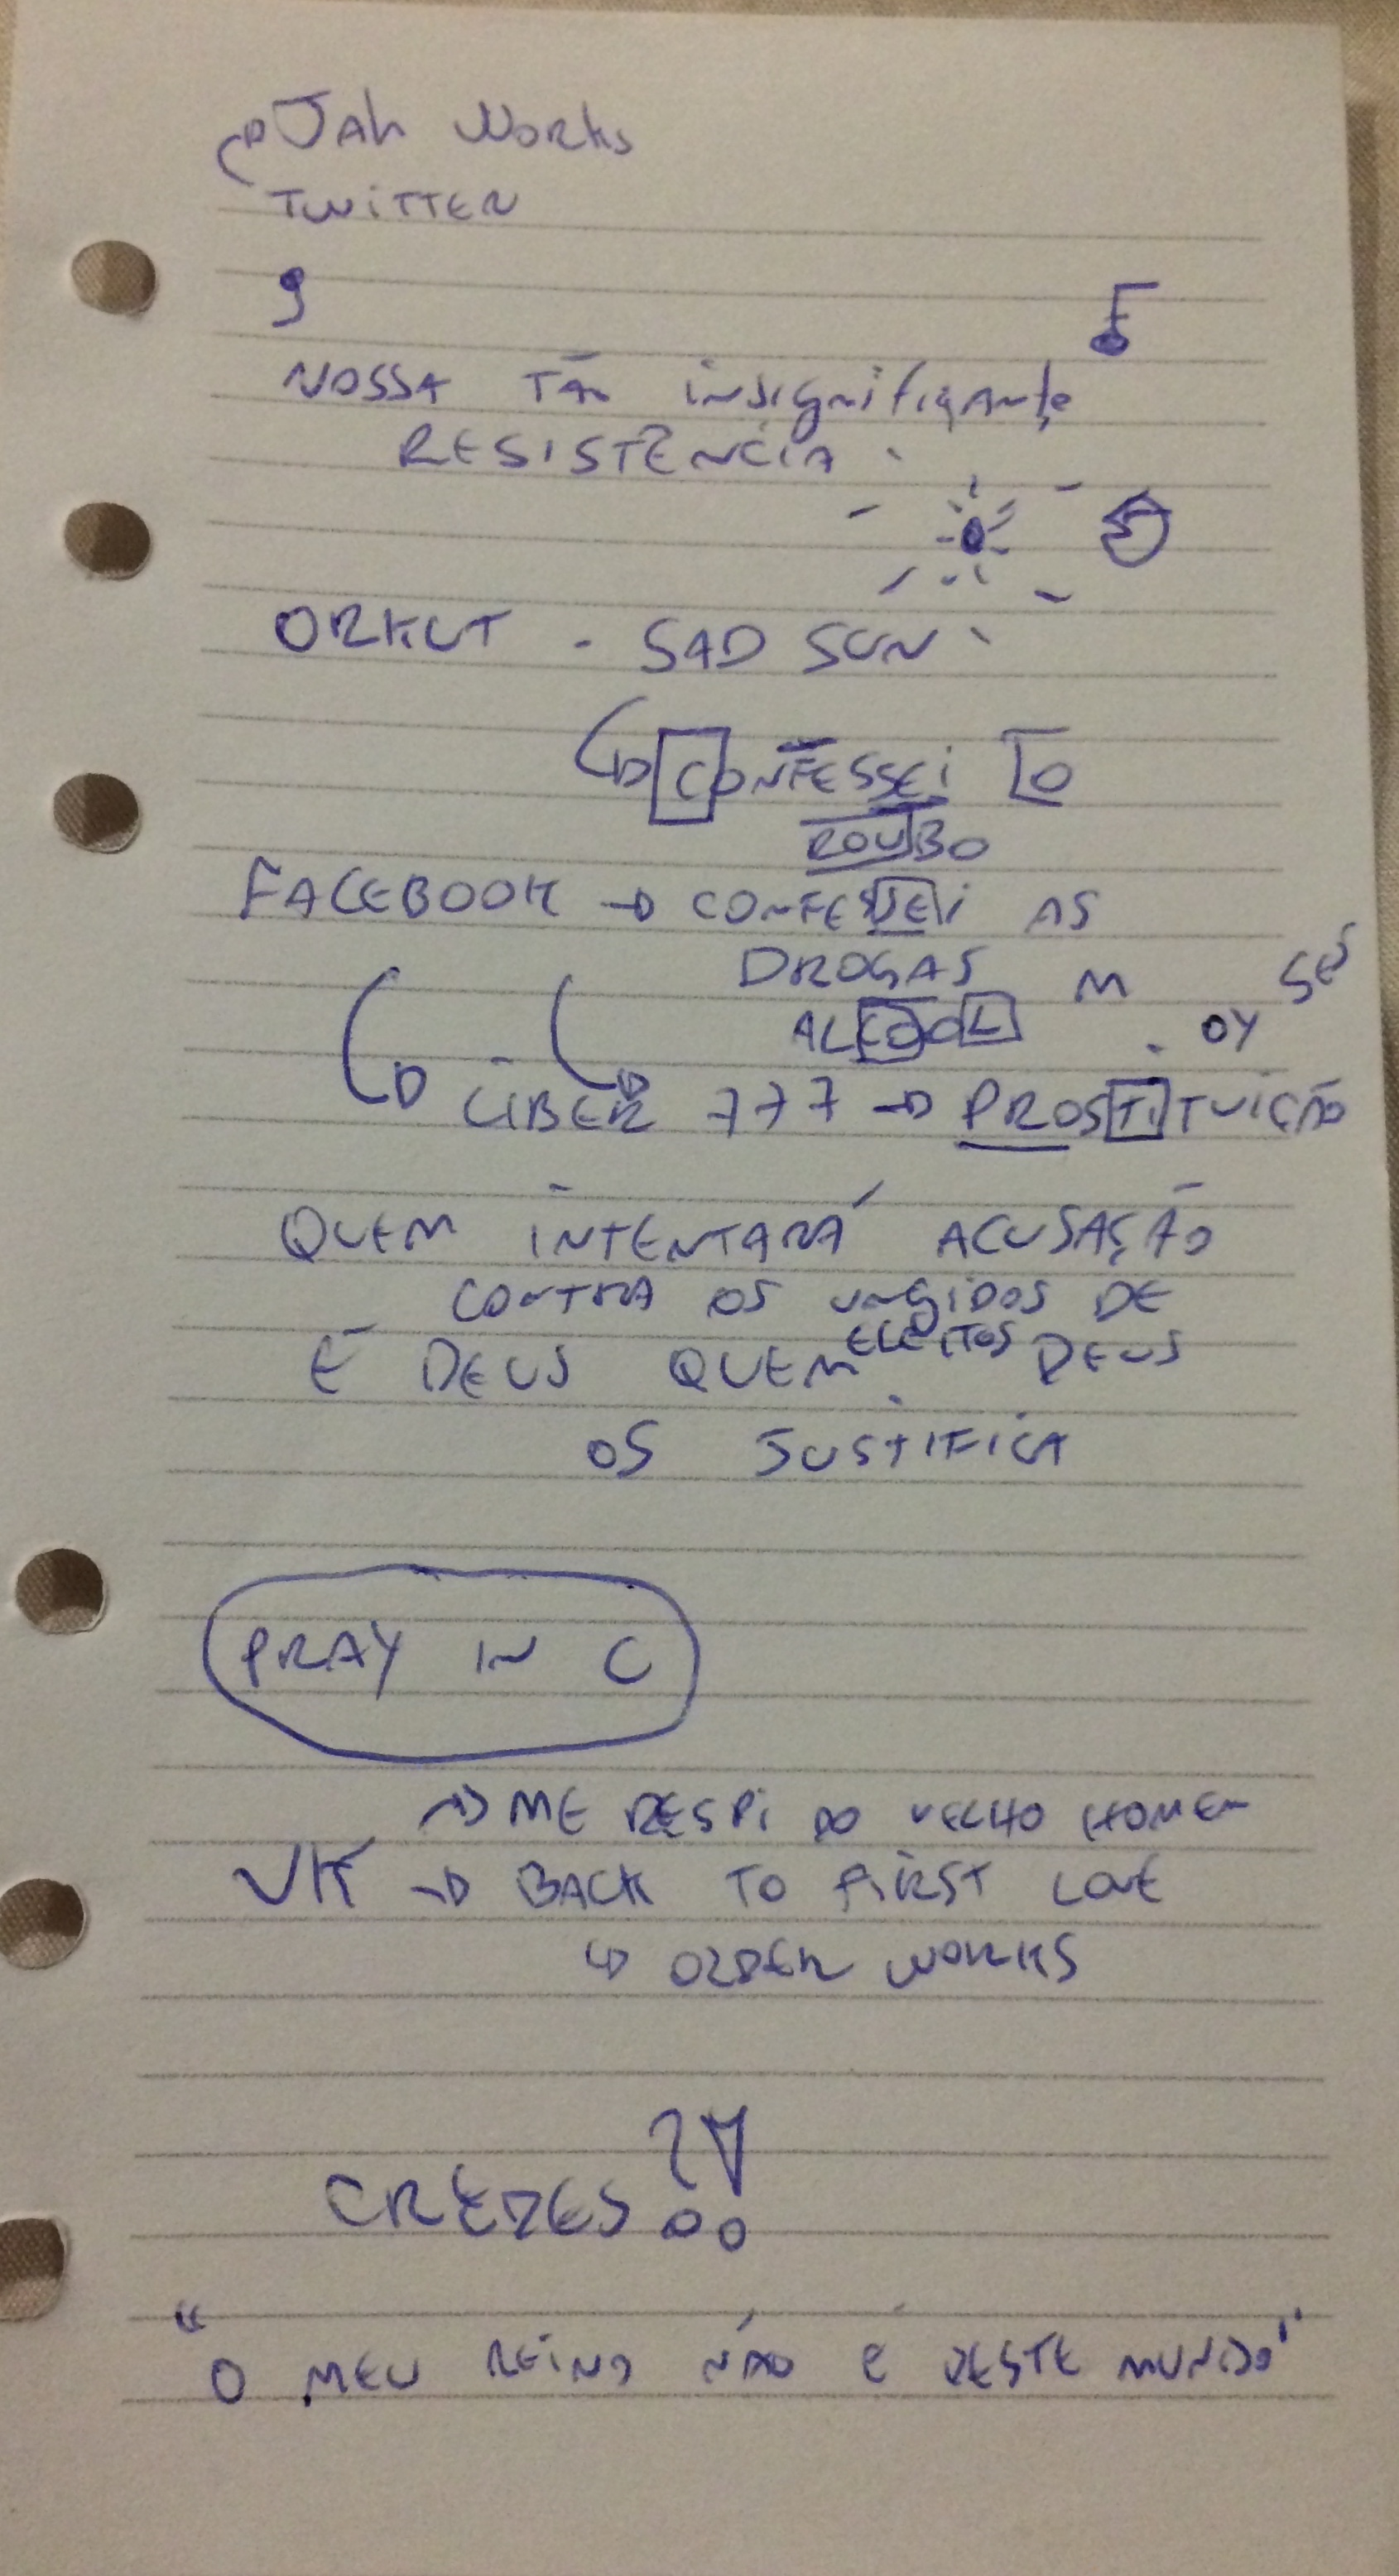 Jah Works
TWITTER
9
NOSSA TÃO insignificante
RESISTÊNCIA
ORKUT - SAD SUN
CONFESSEI O
ROUBO
FACEBOOK → CONFESSEI AS
DROGAS M SÉS
ALCOOL OY
LIBER 777 → PROSTITUIÇÃO
QUEM INTENTARÁ ACUSAÇÃO
CONTRA OS UNGIDOS DE
ELEITOS
É DEUS QUEM DEUS
OS JUSTIFICA
PRAY IN C
→ ME DESPI DO VELHO HOMEM
VK → BACK TO FIRST LOVE
↳ ORDER WORKS
CREDES?!
"O MEU REINO NÃO É DESTE MUNDO"